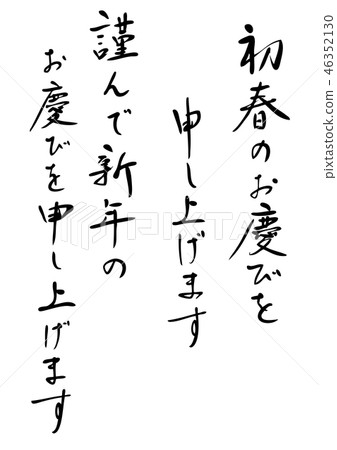 初春のお慶びを
申し上げます
謹んで新年の
お慶びを申し上げます
PIXTA
46352130